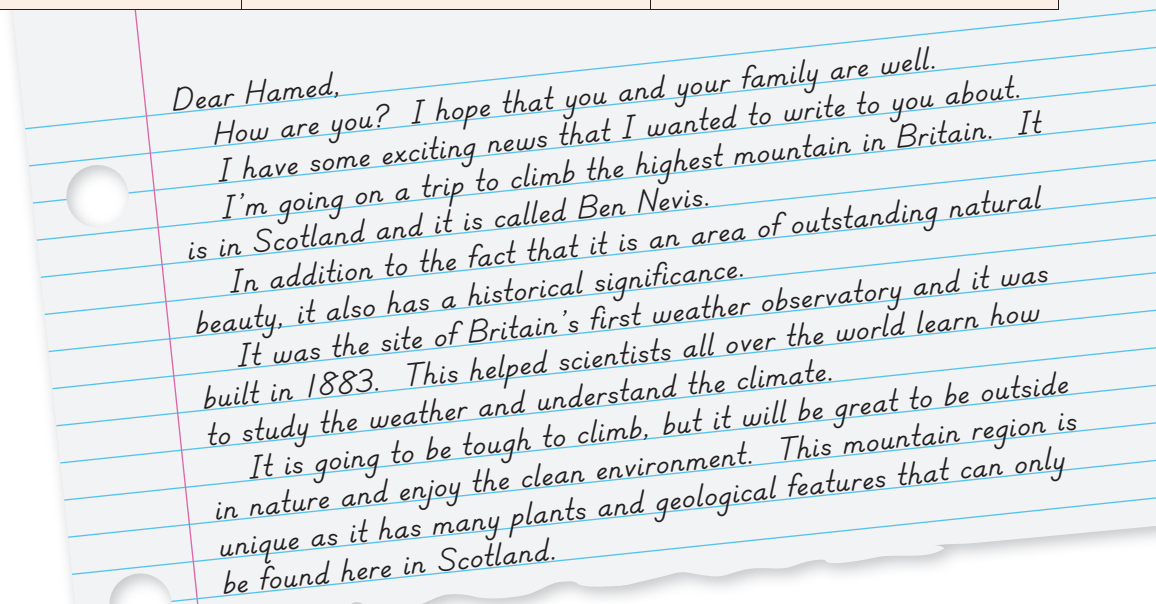 Dear Hamed,
How are you? I hope that you and your family are well.
I have some exciting news that I wanted to write to you about.
I'm going on a trip to climb the highest mountain in Britain. It
is in Scotland and it is called Ben Nevis.
In addition to the fact that it is an area of outstanding natural
beauty, it also has a historical significance.
It was the site of Britain's first weather observatory and it was
built in 1883. This helped scientists all over the world learn how
to study the weather and understand the climate.
It is going to be tough to climb, but it will be great to be outside
in nature and enjoy the clean environment. This mountain region is
unique as it has many plants and geological features that can only
be found here in Scotland.